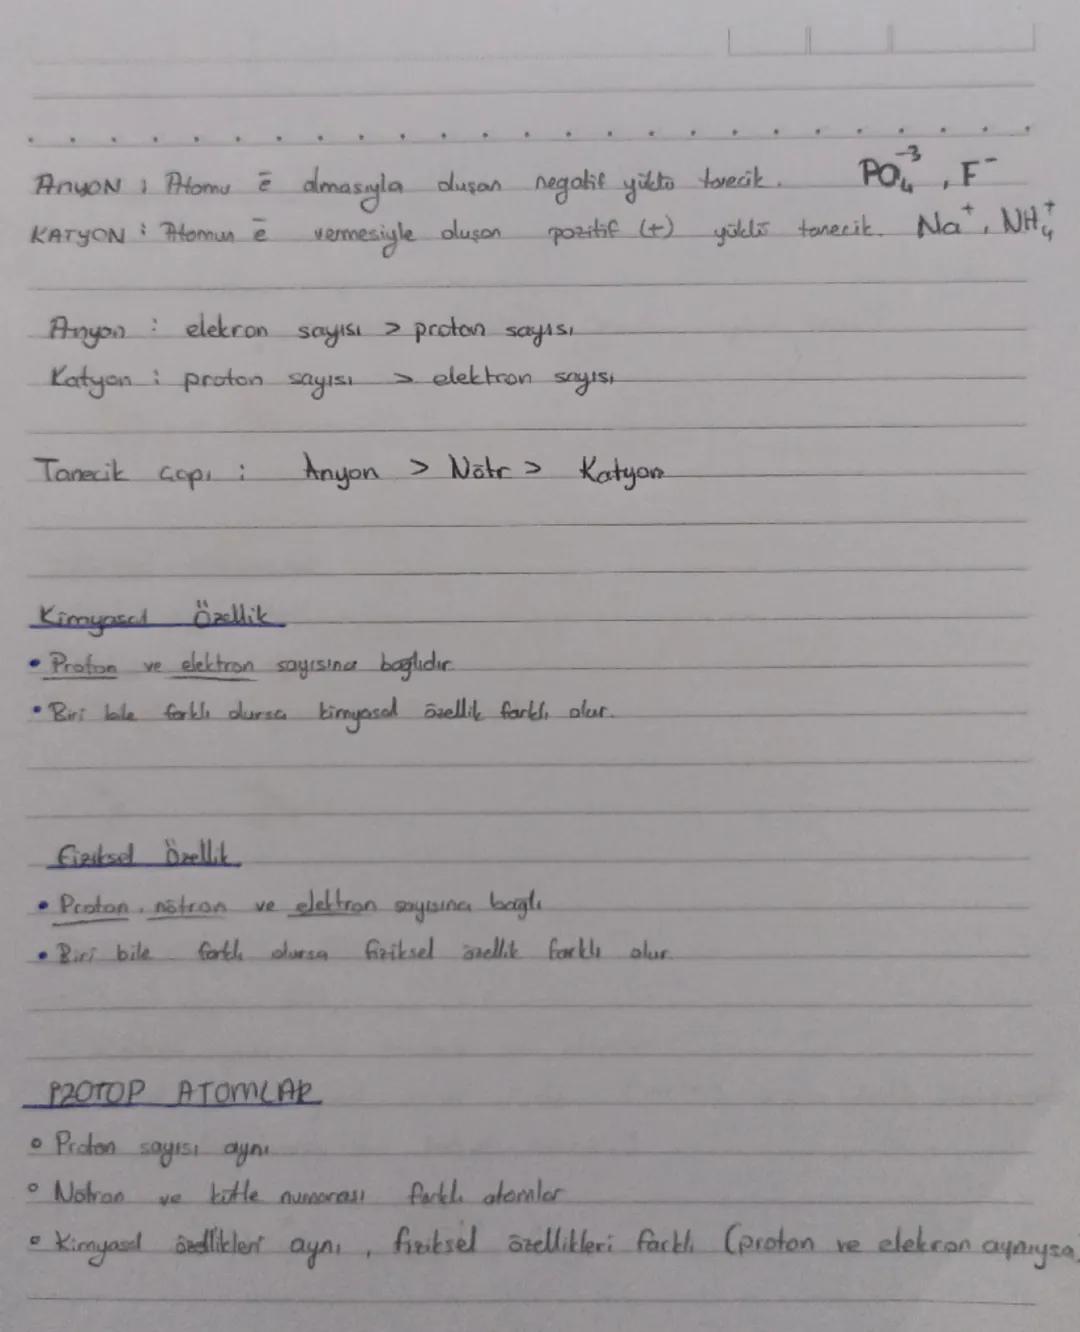 ANYON : Atomu ē almasıyla oluşan negatif yüklü tanecik. PO₄⁻³, F⁻
KATYON : Atomun ē vermesiyle oluşan pozitif (+) yüklü tanecik. Na⁺, NH₄⁺
Anyon : elekron sayısı > proton sayısı
Katyon : proton sayısı > elektron sayısı
Tanecik çapı : Anyon > Nötr > Katyon
Kimyasal Özellik
• Proton ve elektron sayısına bağlıdır.
• Biri bile farklı olursa kimyasal özellik farklı olur.
Fiziksel Özellik
• Proton, nötron ve elektron sayısına bağlı
• Biri bile farklı olursa fiziksel özellik farklı olur.
İZOTOP ATOMLAR
° Proton sayısı aynı
° Nötron ve kütle numarası farklı atomlar
° Kimyasal özellikleri aynı, fiziksel özellikleri farklı (proton ve elekron aynıysa)